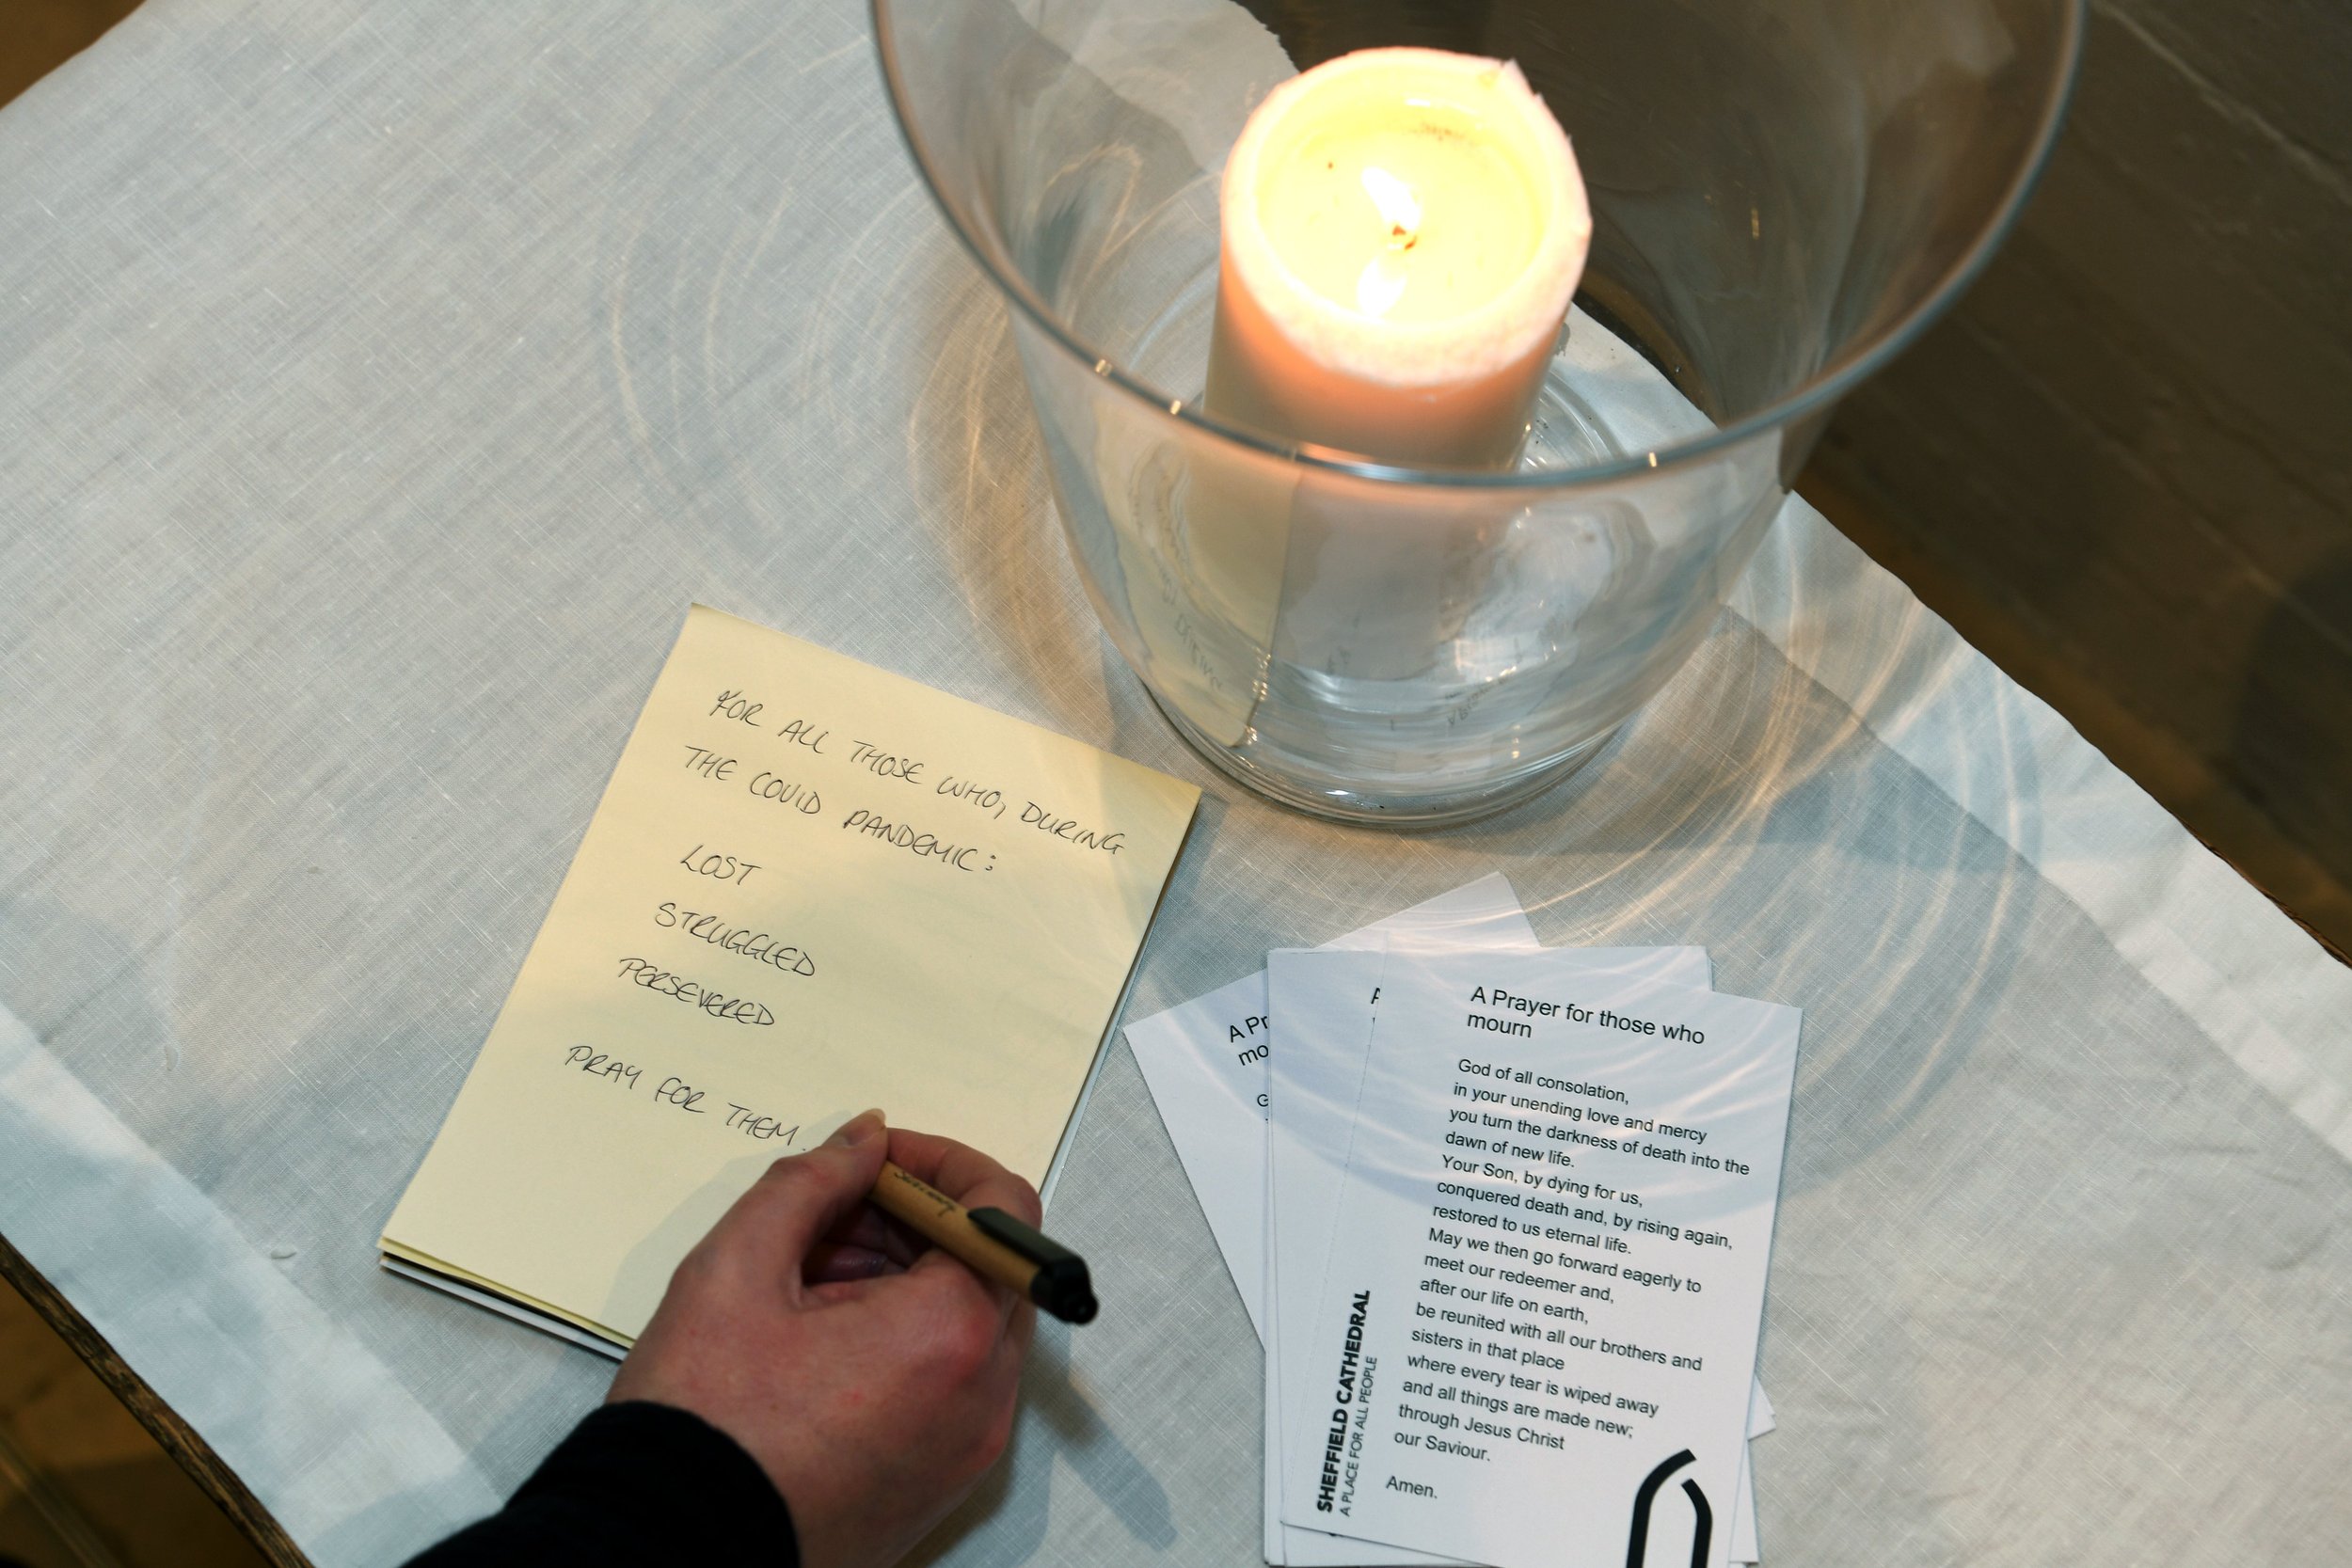 FOR ALL THOSE WHO, DURING
THE COVID PANDEMIC:
LOST
STRUGGLED
PERSEVERED
PRAY FOR THEM.
A Pr
mo
G
A Prayer for those who
mourn
God of all consolation,
in your unending love and mercy
you turn the darkness of death into the
dawn of new life.
Your Son, by dying for us,
conquered death and, by rising again,
restored to us eternal life.
May we then go forward eagerly to
meet our redeemer and,
after our life on earth,
be reunited with all our brothers and
sisters in that place
where every tear is wiped away
and all things are made new;
through Jesus Christ
our Saviour.
Amen.
SHEFFIELD CATHEDRAL
A PLACE FOR ALL PEOPLE